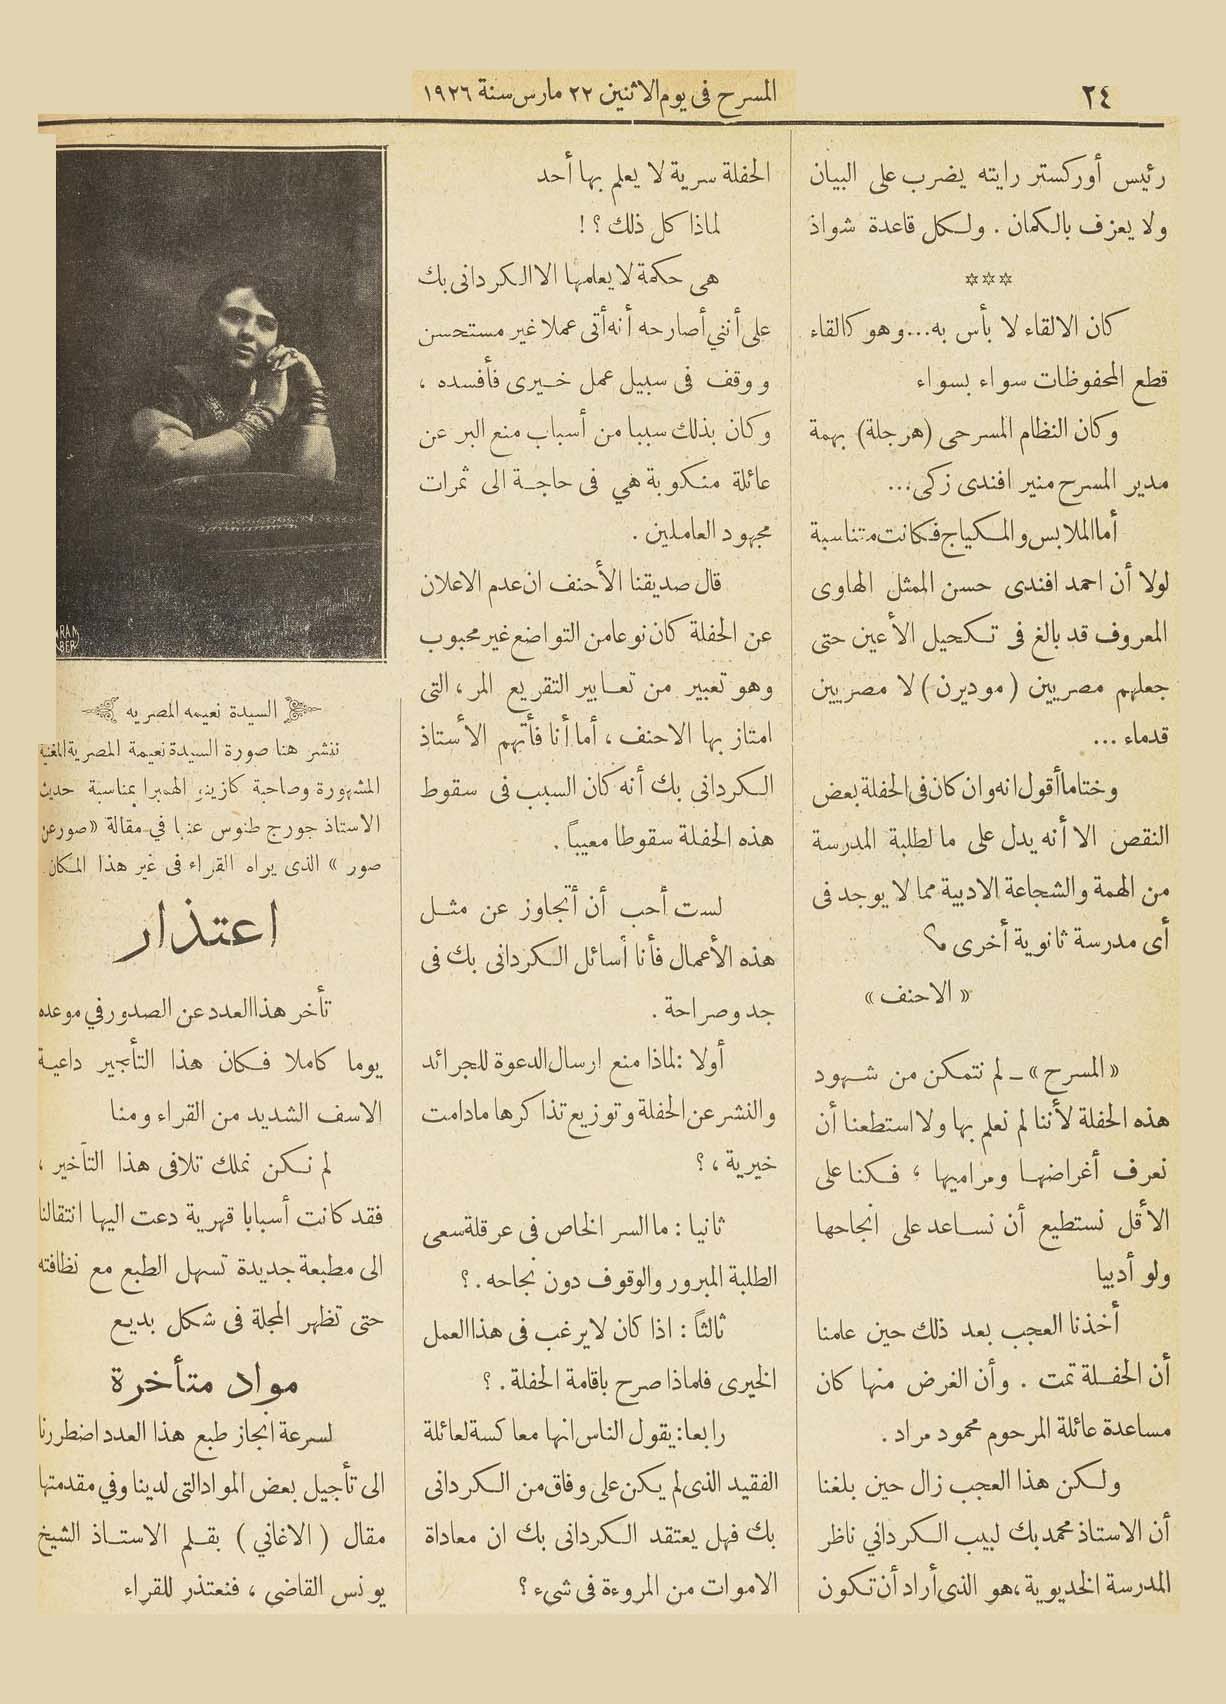 ٢٤
المسرح فى يوم الاثنين ٢٢ مارس سنة ١٩٢٦
رئيس أوركستر رايته يضرب على البيان
ولا يعزف بالكمان . ولكل قاعدة شواذ
***
كان الالقاء لا بأس به... وهو كالقاء
قطع المحفوظات سواء بسواء
وكان النظام المسرحى (هرجلة) بهمة
مدير المسرح منير افندى زكى...
أما الملابس والمكياج فكانت متناسبة
لولا أن احمد افندى حسن الممثل الهاوى
المعروف قد بالغ فى تكحيل الأعين حتى
جعلهم مصريين (موديرن) لا مصريين
قدماء ...
وختاما أقول انه وان كان فى الحفلة بعض
النقص الا أنه يدل على ما لطلبة المدرسة
من الهمة والشجاعة الادبية مما لا يوجد فى
أى مدرسة ثانوية أخرى
« الاحنف »
« المسرح » ـ لم نتمكن من شهود
هذه الحفلة لأننا لم نعلم بها ولا استطعنا أن
نعرف أغراضها ومراميها ؛ فكنا على
الأقل نستطيع أن نساعد على انجاحها
ولو أدبيا
أخذنا العجب بعد ذلك حين علمنا
أن الحفلة تمت . وأن الغرض منها كان
مساعدة عائلة المرحوم محمود مراد .
ولكن هذا العجب زال حين بلغنا
أن الاستاذ محمد بك لبيب الكرداني ناظر
المدرسة الخديوية ، هو الذى أراد أن تكون
الحفلة سرية لا يعلم بها أحد
لماذا كل ذلك ؟ !
هى حكمة لا يعلمها الا الكردانى بك
على أنني أصارحه أنه أتى عملا غير مستحسن
ووقف فى سبيل عمل خيرى فأفسده ،
وكان بذلك سببا من أسباب منع البر عن
عائلة منكوبة هي فى حاجة الى ثمرات
مجهود العاملين .
قال صديقنا الأحنف ان عدم الاعلان
عن الحفلة كان نوعا من التواضع غير محبوب
وهو تعبير من تعابير التقريع المر ، التى
امتاز بها الاحنف ، أما أنا فأتهم الأستاذ
الكردانى بك أنه كان السبب فى سقوط
هذه الحفلة سقوطا معيباً .
لست أحب أن أتجاوز عن مثل
هذه الأعمال فأنا أسائل الكردانى بك فى
جد وصراحة .
أولا : لماذا منع ارسال الدعوة للجرائد
والنشر عن الحفلة وتوزيع تذاكرها مادامت
خيرية ، ؟
ثانيا : ما السر الخاص فى عرقلة سعى
الطلبة المبرور والوقوف دون نجاحه . ؟
ثالثاً : اذا كان لا يرغب فى هذا العمل
الخيرى فلماذا صرح باقامة الحفلة . ؟
رابعا : يقول الناس انها معاكسة لعائلة
الفقيد الذى لم يكن على وفاق من الكردانى
بك فهل يعتقد الكردانى بك ان معاداة
الاموات من المروءة فى شىء ؟
السيدة نعيمه المصريه
ننشر هنا صورة السيدة نعيمة المصرية المغنية
المشهورة وصاحبة كازينو الهمبرا بمناسبة حديث
الاستاذ جورج طنوس عنها في مقالة « صور عن
صور » الذى يراه القراء فى غير هذا المكان
اعتذار
تأخر هذا العدد عن الصدور في موعده
يوما كاملا فكان هذا التأخير داعية
الاسف الشديد من القراء ومنا
لم نكن نملك تلافى هذا التأخير ،
فقد كانت أسبابا قهرية دعت اليها انتقالنا
الى مطبعة جديدة تسهل الطبع مع نظافته
حتى تظهر المجلة فى شكل بديع
مواد متأخرة
لسرعة انجاز طبع هذا العدد اضطررنا
الى تأجيل بعض المواد التى لدينا وفي مقدمتها
مقال ( الاغاني ) بقلم الاستاذ الشيخ
يونس القاضى ، فنعتذر للقراء